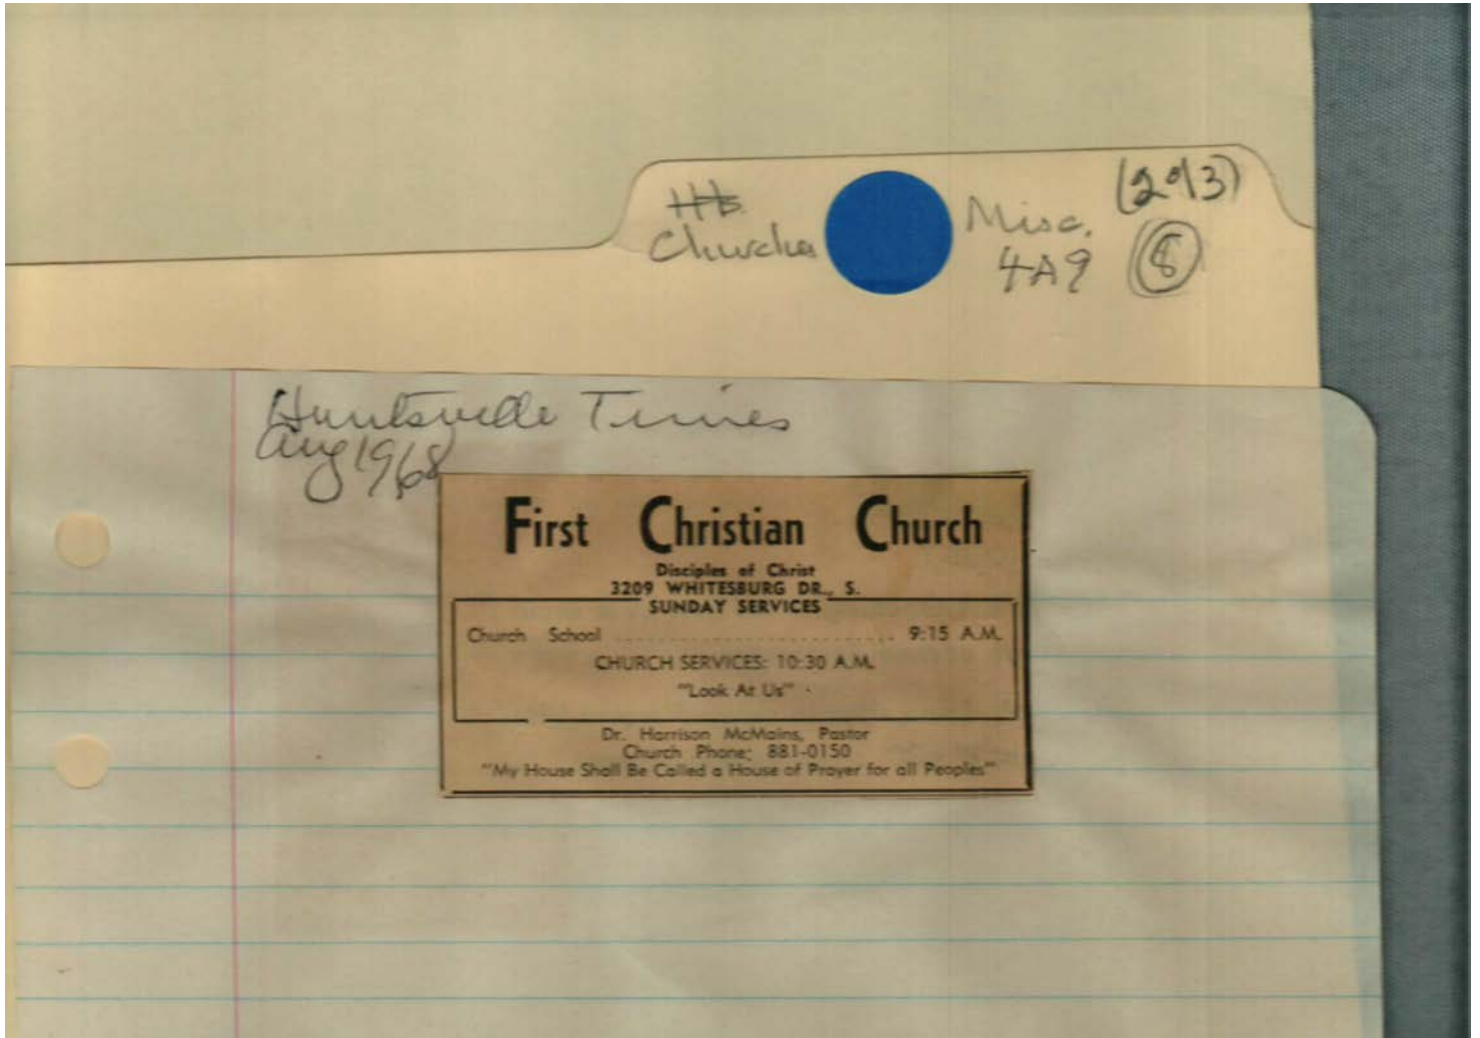 Hts. (2 of 3)
Churches Misc.
4A9 8
Huntsville Times
Aug 1968
First Christian Church
Disciples of Christ
3209 WHITESBURG DR., S.
SUNDAY SERVICES
Church School ........................ 9:15 A.M.
CHURCH SERVICES: 10:30 A.M.
"Look At Us"
Dr. Harrison McMains, Pastor
Church Phone: 881-0150
"My House Shall Be Called a House of Prayer for all Peoples"